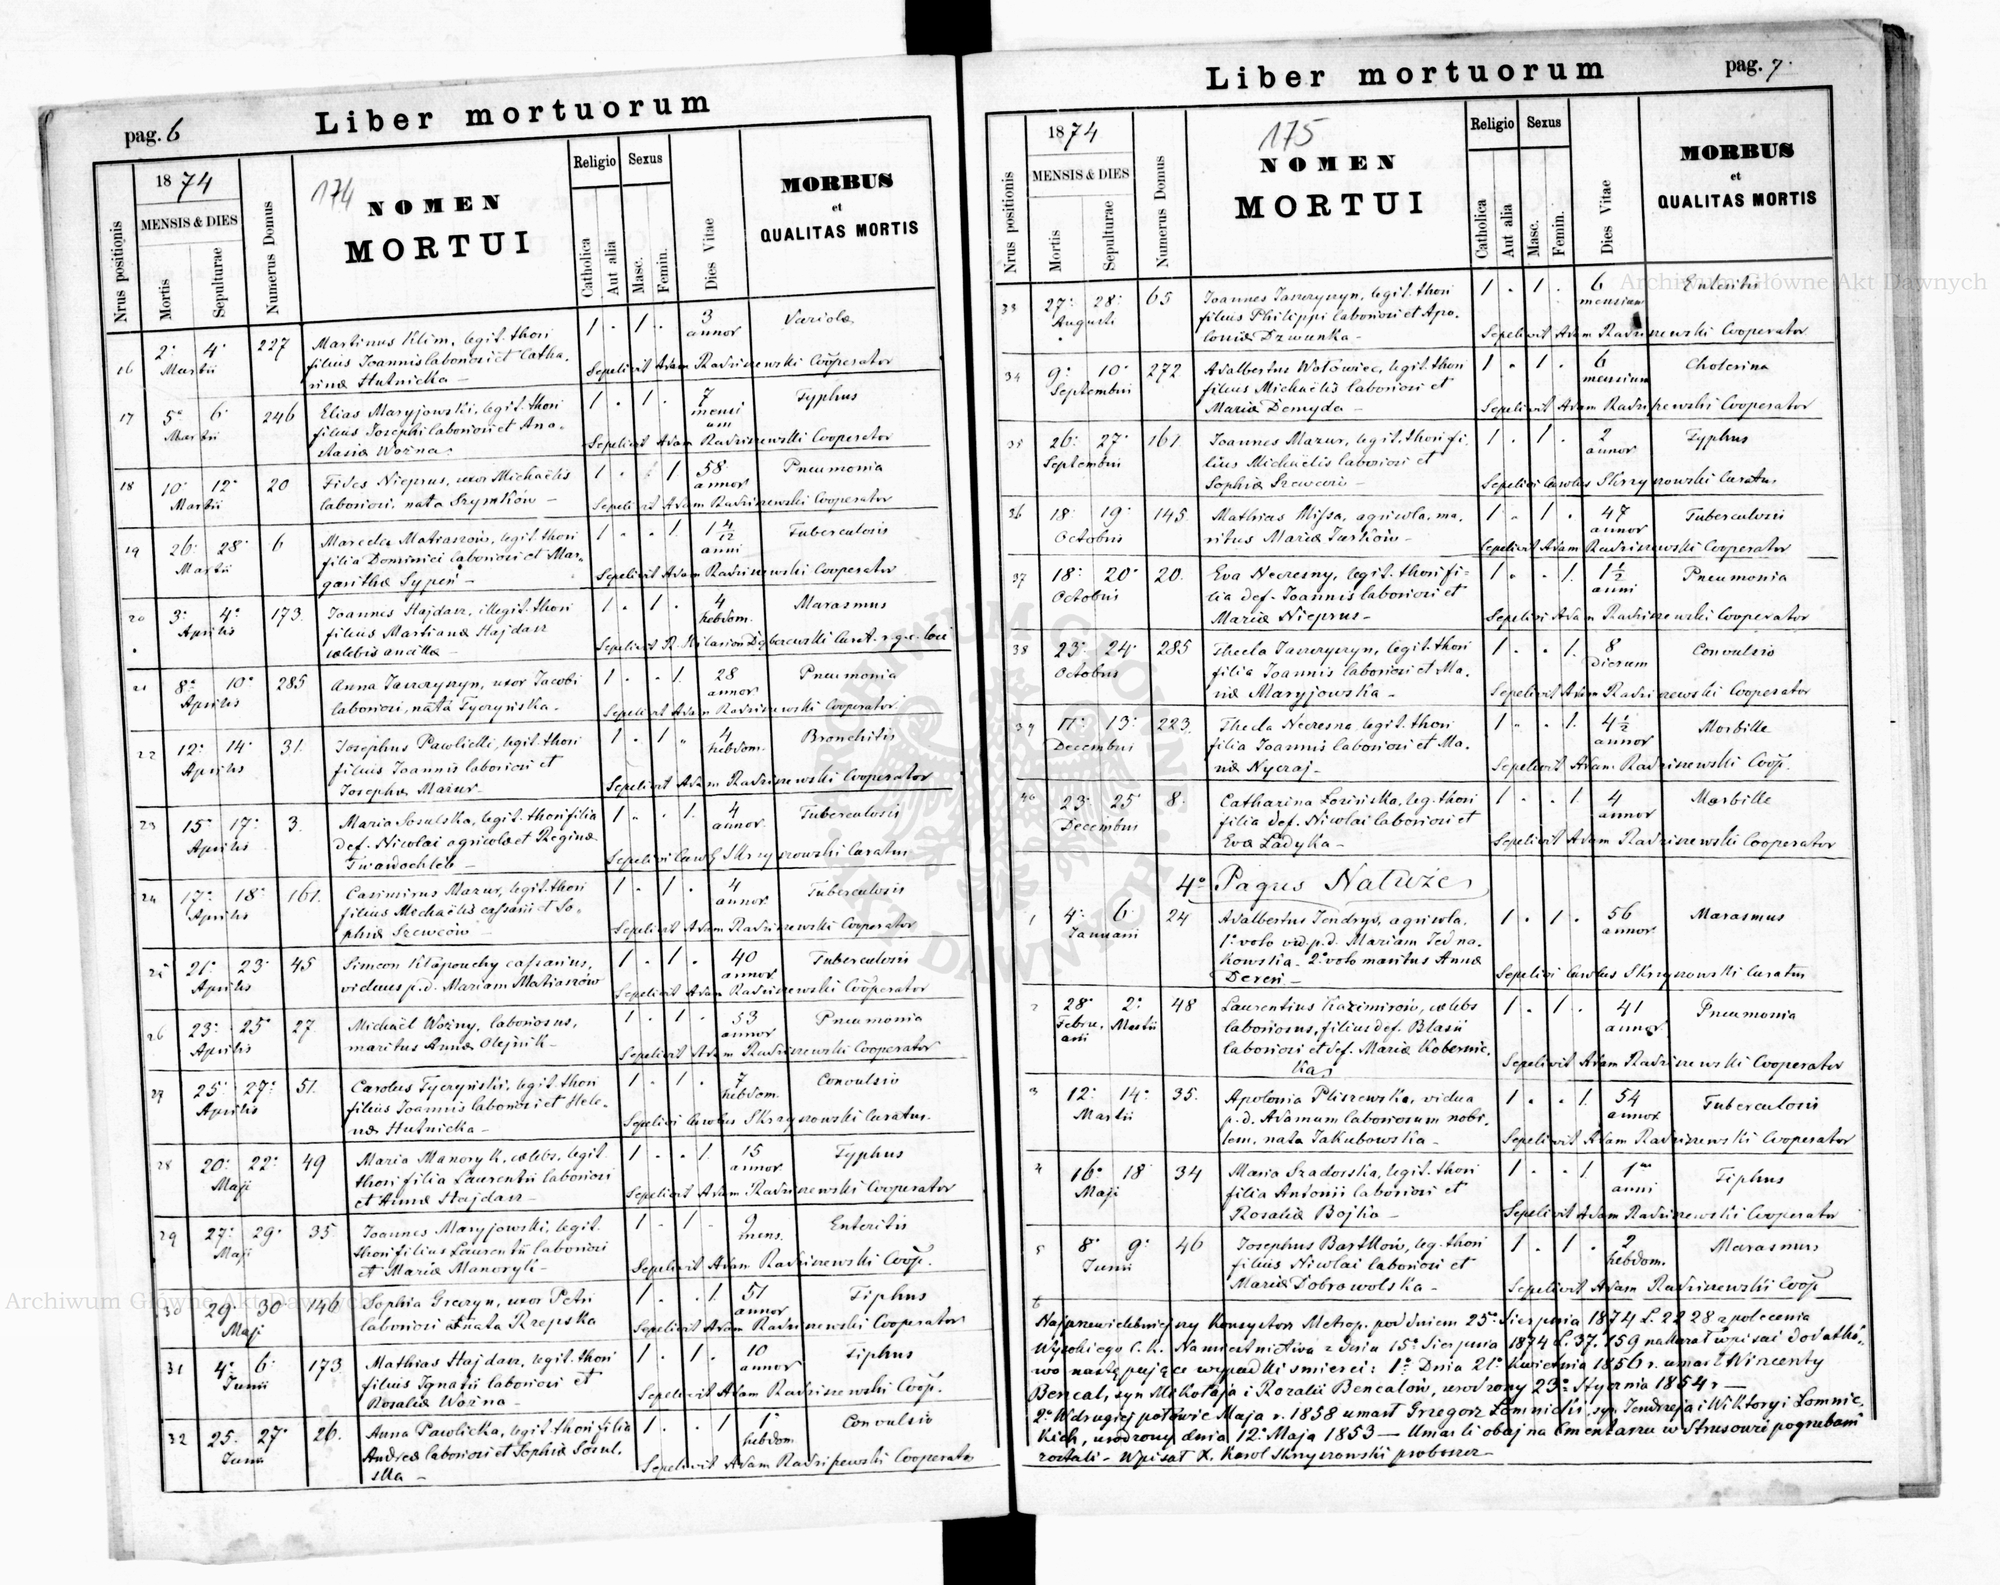 pag. 6
Liber mortuorum
1874
174
MENSIS & DIES
Nrus positionis
Mortis
Sepulturae
Numerus Domus
NOMEN
MORTUI
Religio
Sexus
Catholica
Aut alia
Masc.
Femin.
Dies Vitae
MORBUS
et
QUALITAS MORTIS
16 2. 4. Martii 227 Martinus Klim, legit. thori 1 . 1 . 3 annor Variola
filius Joannis laboriosi et Catha-
rinæ Hutnicka -
Sepelivit Adam Radziszewski Cooperator
17 5. 6. Martii 246 Elias Maryjowski, legit. thori 1 . 1 . 7 mensium Typhus
filius Josephi laboriosi et Ana-
stasiæ Woźna
Sepelivit Adam Radziszewski Cooperator
18 10. 12. Martii 20 Fides Nieprus, uxor Michaëlis 1 . . 1 58 annor Pneumonia
laboriosi, nata Szymków -
Sepelivit Adam Radziszewski Cooperator
19 26. 28. Martii 6 Marcela Matiaszów, legit. thori 1 . . 1 1 4/12 anni Tuberculosis
filia Dominici laboriosi et Mar-
garithæ Sypeń -
Sepelivit Adam Radziszewski Cooperator
20 3. 4. Aprilis 173 Joannes Hajdasz, illegit. thori 1 . 1 . 4 hebdom. Marasmus
filius Martianæ Hajdasz
cælebis ancillæ -
Sepelivit R. Hilarion Curat. r. g. c. loci
21 8. 10. Aprilis 285 Anna uxor Jacobi 1 . . 1 28 annor Pneumonia
laboriosi, nata Tyczyńska.
Sepelivit Adam Radziszewski Cooperator
22 12. 14. Aprilis 31. Josephus Pawlicki, legit. thori 1 . 1 . 4 hebdom. Bronchitis
filius Joannis laboriosi et
Josephæ Mazur.
Sepelivit Adam Radziszewski Cooperator
23 15. 17. Aprilis 3. Maria Sosulska, legit. thori filia 1 . . 1. 4 annor. Tuberculosis
def. Nicolai agricolæ et Reginæ
Twardochleb -
Sepelivi Carol Skrzyszowski Curatus
24 17. 18. Aprilis 161. Casimirus Mazur, legit. thori 1 . 1 . 4 annor Tuberculosis
filius Michaëlis cassarii et So-
phiæ Szewców -
Sepelivit Adam Radziszewski Cooperator
25 21. 23. Aprilis 45 Simeon Kłapouchy cassarius, 1 . 1 . 40 annor Tuberculosis
viduus p.d. Mariam Matiaszów
Sepelivit Adam Radziszewski Cooperator
26 23. 25. Aprilis 27. Michaël Woźny, laboriosus, 1 . 1 . 53 annor Pneumonia
maritus Annæ Olejnik -
Sepelivit Adam Radziszewski Cooperator
27 25. 27. Aprilis 51. Carolus Tyczyński, legit. thori 1 . 1 . 7 hebdom. Convulsio
filius Joannis laboriosi et Hele-
næ Hutnicka -
Sepelivi Carolus Skrzyszowski Curatus.
28 20. 22. Maji 49 Maria Manoryk, cælebs, legit. 1 . . 1 15 annor. Typhus
thori filia Laurentii laboriosi
et Annæ Hajdasz -
Sepelivit Adam Radziszewski Cooperator
29 27. 29. Maji 35. Joannes Maryjowski, legit. 1 . 1 . 9 mens. Enteritis
thori filius Laurentii laboriosi
et Mariæ Manoryk -
Sepelivit Adam Radziszewski Coop.
30 29. 30. Maji 146 Sophia Greczyn, uxor Petri 1 . . 1 51 annor Tiphus
laboriosi nata Rzepska
Sepelivit Adam Radziszewski Cooperator
31 4. 6. Junii 173 Mathias Hajdasz, legit. thori 1 . 1 . 10 annor Tiphus
filius Ignatii laboriosi et
Rosaliæ Woźna -
Sepelivit Adam Radziszewski Coop.
32 25. 27. Junii 26. Anna Pawlicka, legit. thori filia 1 . . 1 1 hebdom. Convulsio
Andreæ laboriosi et Sophiæ Sosul-
ska -
Sepelivit Adam Radziszewski Cooperator
Liber mortuorum
pag. 7.
1874
175
MENSIS & DIES
Nrus positionis
Mortis
Sepulturae
Numerus Domus
NOMEN
MORTUI
Religio
Sexus
Catholica
Aut alia
Masc.
Femin.
Dies Vitae
MORBUS
et
QUALITAS MORTIS
33 27. 28. Augusti 65 Joannes legit. thori 1 . 1 . 6 mensium Enteritis
filius Philippi laboriosi et Apo-
loniæ Dzwonka -
Sepelivit Adam Radziszewski Cooperator
34 9. 10. Septembris 272 Adalbertus Wołowiec, legit. thori 1 . 1 . 6 mensium Cholerina
filius Michaëlis laboriosi et
Mariæ Demyda -
Sepelivit Adam Radziszewski Cooperator
35 26. 27. Septembris 161. Joannes Mazur, legit. thori fi- 1 . 1 . 2 annor Typhus
lius Michaëlis laboriosi et
Sophiæ Szewców -
Sepelivi Carolus Skrzyszowski Curatus
36 18. 19. Octobris 145. Mathias Missa, agricola, ma- 1 . 1 . 47 annor Tuberculosis
ritus Mariæ Jurków -
Sepelivit Adam Radziszewski Cooperator
37 18. 20. Octobris 20. Eva Nocresny, legit. thori fi- 1 . . 1. 1 1/2 anni Pneumonia
lia def. Joannis laboriosi et
Mariæ Nieprus -
Sepelivit Adam Radziszewski Cooperator
38 23. 24. Octobris 285 Thecla legit. thori 1 . . 1. 8 dierum Convulsio
filia Joannis laboriosi et Ma-
riæ Maryjowska -
Sepelivit Adam Radziszewski Cooperator
39 11. 13. Decembris 223. Thecla Nocresna legit. thori 1 . . 1. 4 1/2 annor Morbille
filia Joannis laboriosi et Ma-
riæ Nycraj -
Sepelivit Adam Radziszewski Coop.
40 23. 25. Decembris 8. Catharina Lozińska, leg. thori 1 . . 1. 4 annor Morbille
filia def. Nicolai laboriosi et
Evæ Ładyka -
Sepelivit Adam Radziszewski Cooperator
4° Pagus Nałuże
1 4. 6. Januarii 24 Adalbertus Jendrys, agricola, 1 . 1 . 56 annor. Marasmus
1° voto vid. p.d. Mariam Jedna-
kowska - 2° voto maritus Annæ
Dereń -
Sepelivi Carolus Skrzyszowski Curatus
2 28. Februarii 2. Martii 48 Laurentius Kazimirów, cælebs 1 . 1 . 41 annor Pneumonia
laboriosus, filius def. Blasii
laboriosi et def. Mariæ Kobernic-
ka
Sepelivit Adam Radziszewski Cooperator
3 12. 14. Martii 35. Apolonia Pliszewska, vidua 1 . . 1. 54 annor Tuberculosis
p.d. Adamum laboriosum nobi-
lem, nata Jakubowska -
Sepelivit Adam Radziszewski Cooperator
4 16. 18 Maji 34 Maria Szadorska, legit. thori 1 . . 1 1 anni Tiphus
filia Antonii laboriosi et
Rosaliæ Bojko -
Sepelivit Adam Radziszewski Cooperator
5 8. 9. Junii 46 Josephus Bartków, leg. thori 1 . 1 . 2 hebdom. Marasmus
filius Nicolai laboriosi et
Mariæ Dobrowolska -
Sepelivit Adam Radziszewski Coop
Najprzewielebniejszy Konsystorz Metrop. pod dniem 25° Sierpnia 1874 L. 2228 z polecenia
Wysokiego C. K. Namiestnictwa z dnia 15° Sierpnia 1874 L. 37.159 nakazał wpisać dodatko-
wo następujące wypadki śmierci: 1° Dnia 21° Kwietnia 1856 r. umarł Wincenty
Bencal, syn Mikołaja i Rozalii Bencalów, urodzony 23° Stycznia 1854 r -
2° W drugiej połowie Maja r. 1858 umarł Grzegorz Łomnicki, syn Jendrzeja i Wiktoryi Łomnic-
kich, urodzony dnia 12° Maja 1853 - Umarli obaj na Cmentarzu w Strusowie pogrzebani
zostali - Wpisał X. Karol Skrzyszowski proboszcz -
Archiwum Główne Akt Dawnych
Archiwum Główne Akt Dawnych
ARCHIWUM GŁÓWNE AKT DAWNYCH